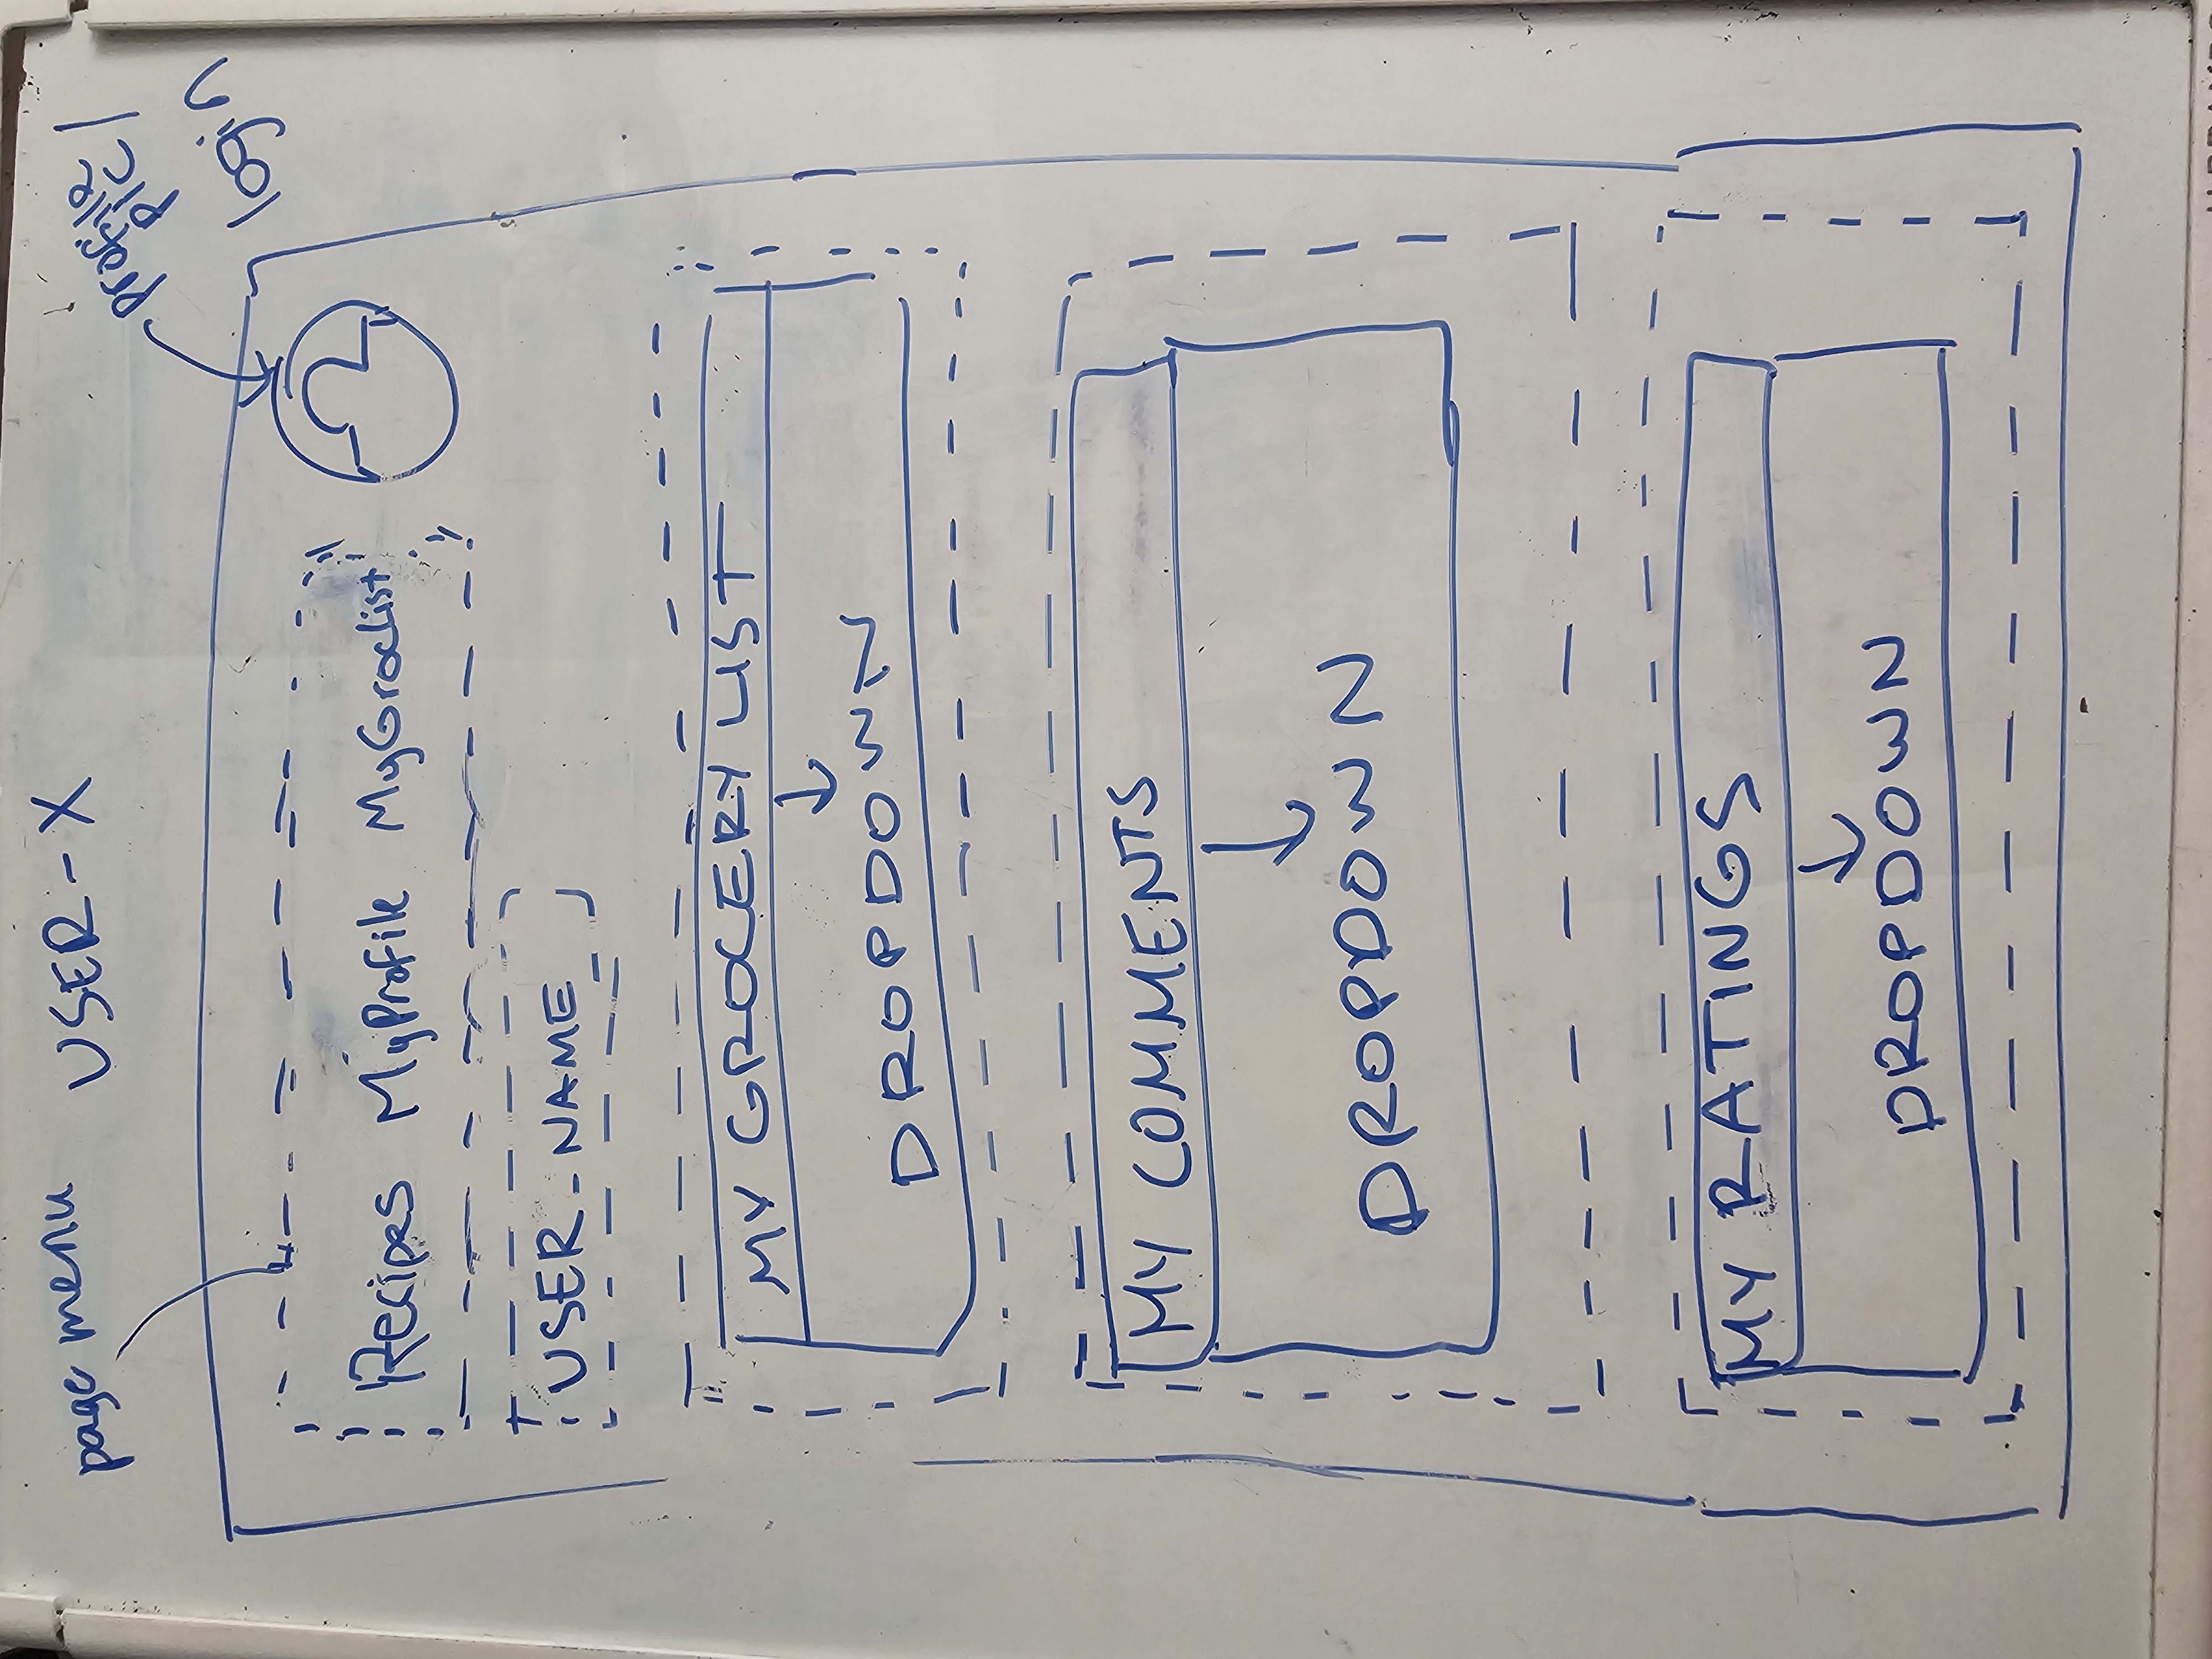 page menu USER-X
profile
pic /
login
Recipes MyProfile MyGroclist
USER_NAME
MY GROCERY LIST
DROPDOWN
MY COMMENTS
DROPDOWN
MY RATINGS
DROPDOWN